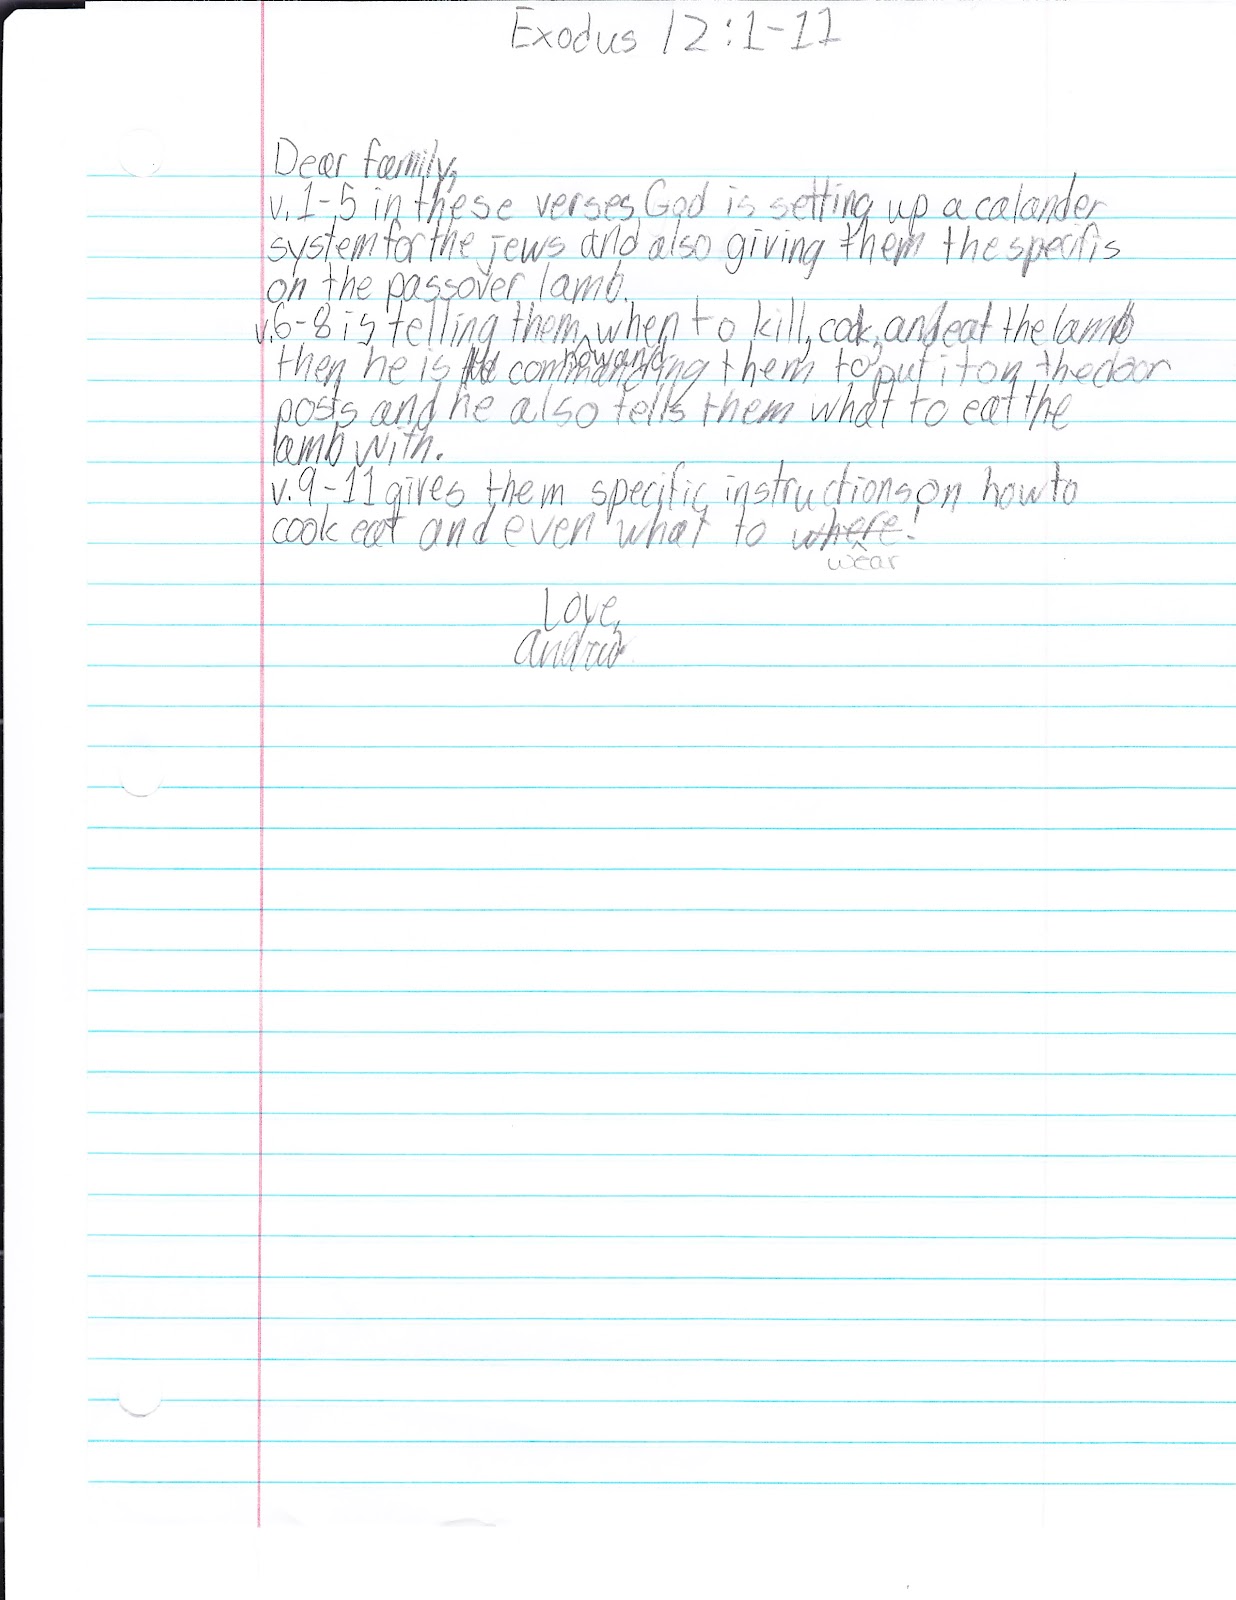 Exodus 12:1-11
Dear family,
v.1-5 in these verses God is setting up a calander
system for the jews and also giving them the specifis
on the passover lamb.
v.6-8 is telling them when to kill, cook, and eat the lamb
how and
then he is commanding them to put it on the door
posts and he also tells them what to eat the
lamb with.
v.9-11 gives them specific instructions on how to
cook eat and even what to where!
wear
Love,
Andrew